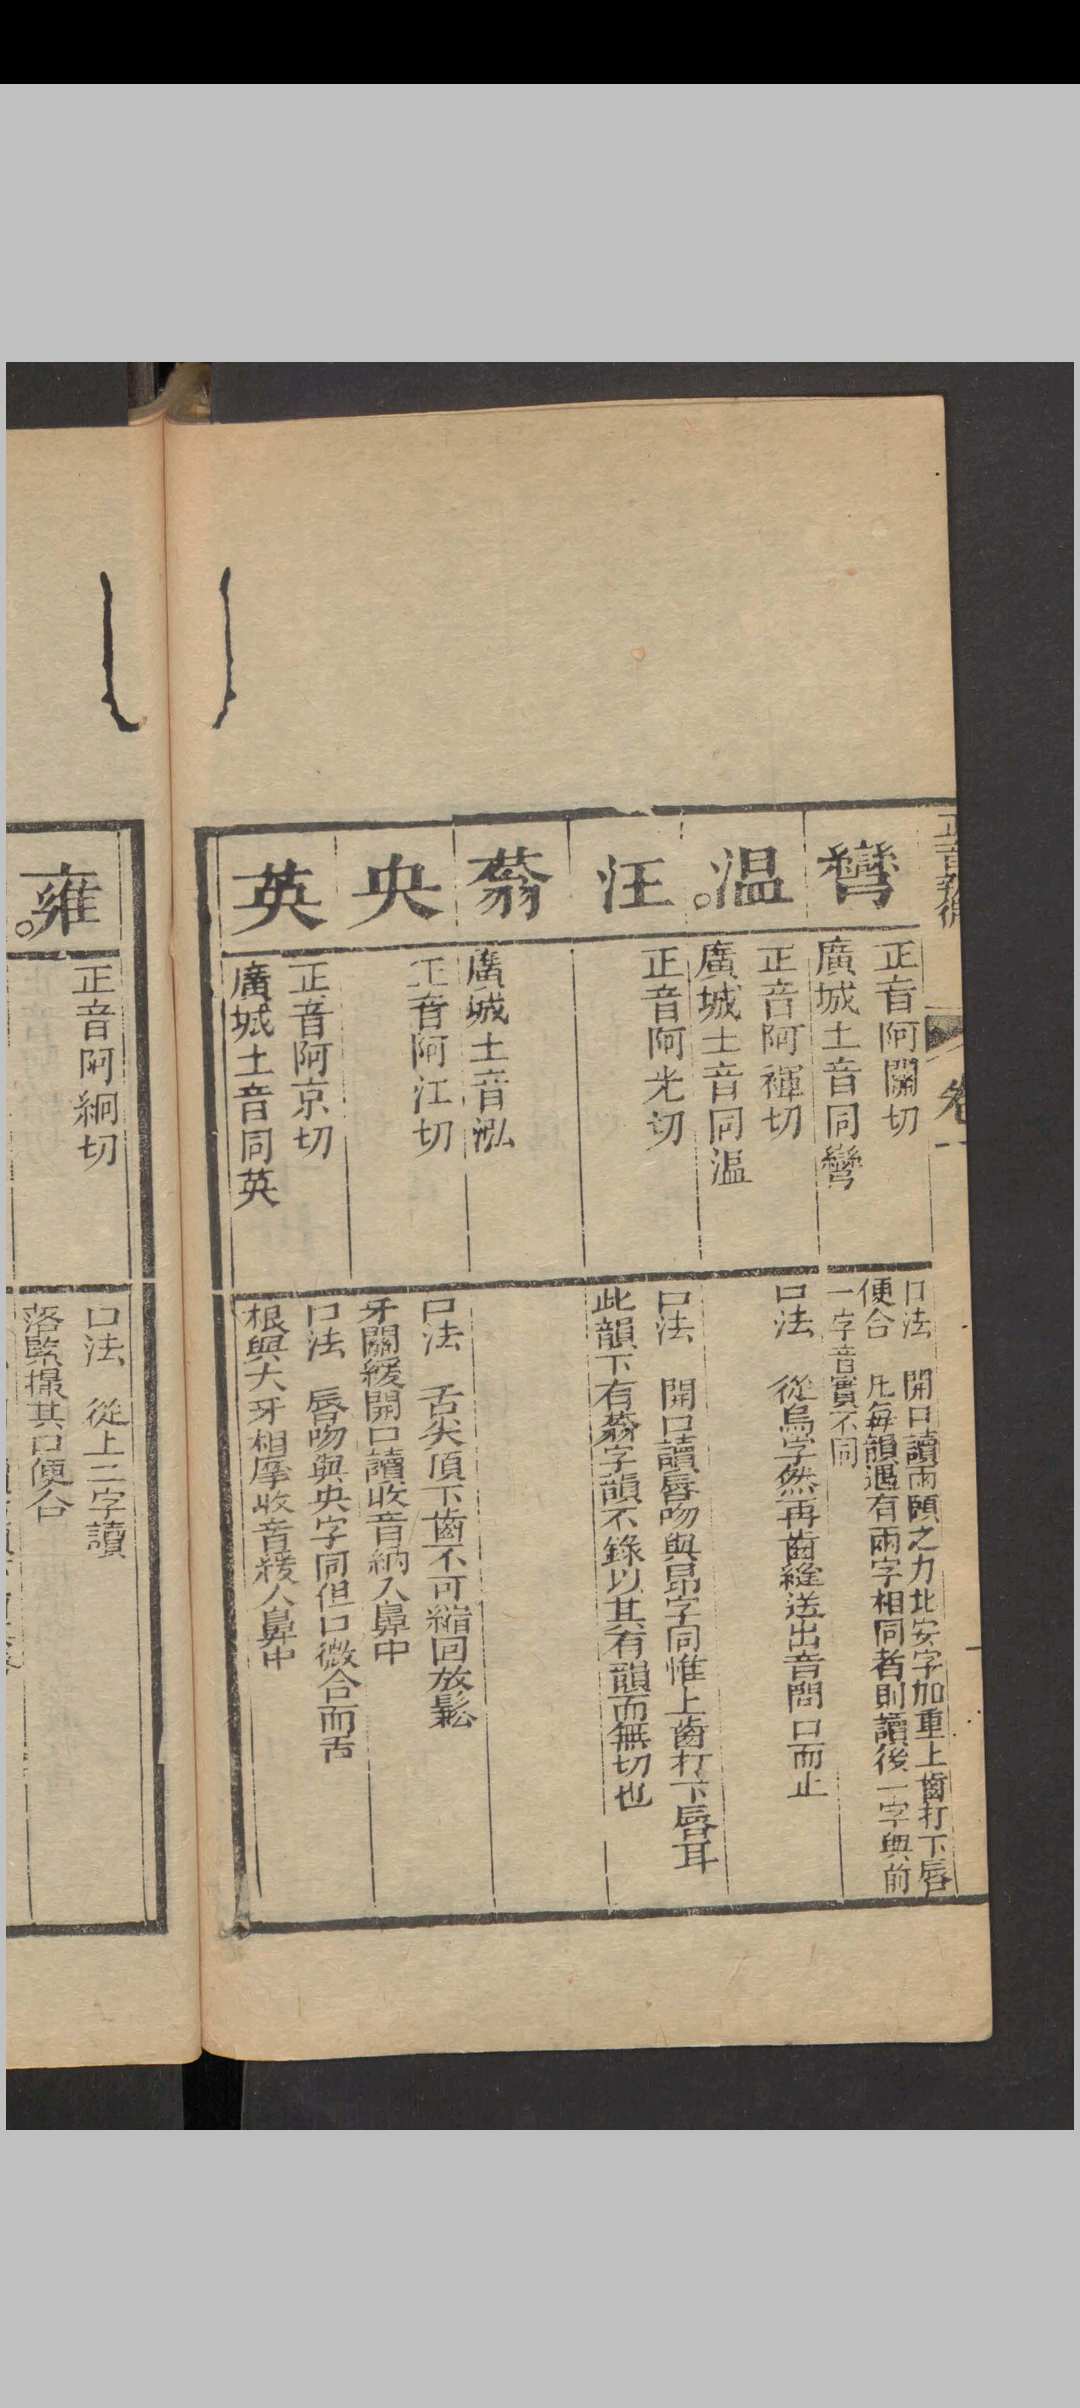 正音
卷一
彎
正音阿關切
廣城土音同彎
口法 開口讀兩頤之力比安字加重上齒打下唇
便合 凡每韻遇有兩字相同者則讀後一字與前
一字音實不同
温
正音阿褌切
廣城土音同温
口法 從烏字然再齒縫送出音悶口而止
汪
正音阿光切
口法 開口讀唇吻與昂字同惟上齒打下唇耳
此韻下有蓊字韻不錄以其有韻而無切也
蓊
廣城土音泓
央
正音阿江切
口法 舌尖頂下齒不可縮回放鬆
牙關緩開口讀收音納入鼻中
英
正音阿京切
廣城土音同英
口法 唇吻與央字同但口微合而舌
根與大牙相摩收音緩入鼻中
雍
正音阿絅切
口法 從上二字讀
落緊撮其口便合